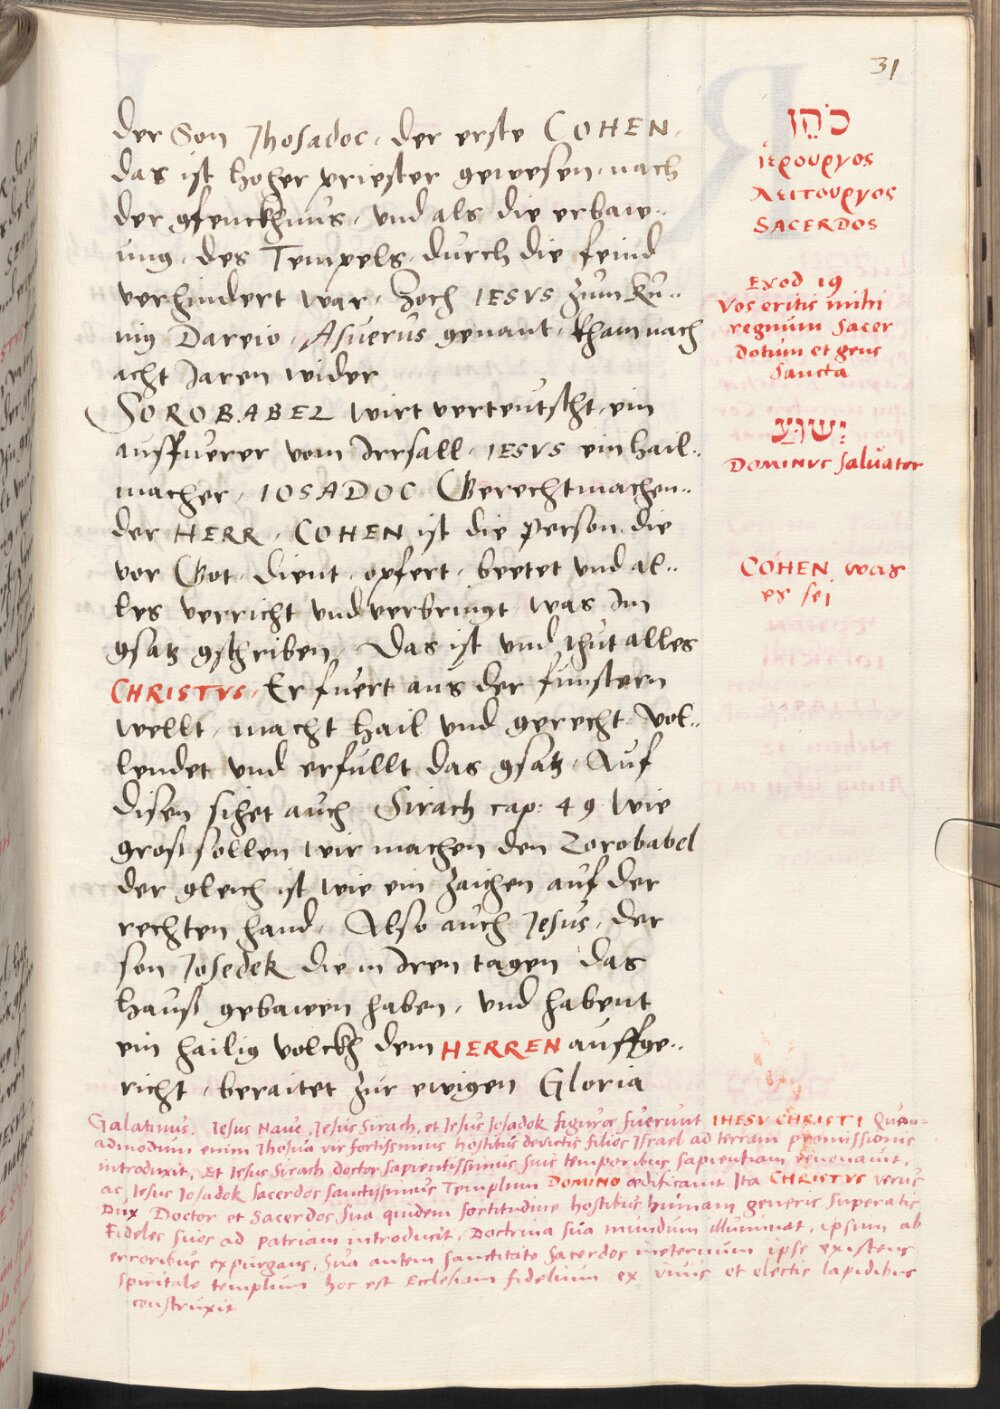 31
der Son Jhosadoc, der erste COHEN,
das ist hoher priester gewesen, nach
der gfenckhnus, und als die erbaw..
ung, des Tempels, durch die feind
verhindert war, Zoch IESVS zum Ku..
nig Dareio, Asuerus genant, kham nach
acht Jaren wider
SOROBABEL wirt verteutscht, ein
auffuerer vom Irrsall, IESVS ein hail..
macher, IOSADOC Gerechtmachen..
der HERR, COHEN ist die person die
vor Got, dient, opfert, beetet und al..
les verricht und verbringt was Im
gsatz gschriben, Das ist und thut alles
CHRISTVS, Er fuert aus der finstern
wellt, macht hail und gerecht, Vol..
lendet und erfullt das gsatz, Auf
disen sihet auch Sirach cap: 49 Wie
gros sollen wir machen den Zorobabel
der gleich ist wie ein zaichen auf der
rechten hand, Also auch Jesus, der
son Josedek die in Iren tagen das
hauß gebawen haben, und habent
ein hailig volckh dem HERREN auffge..
richt, beraitet zur ewigen Gloria
כֹהֵן
ἱερουργος
λειτουργος
SACERDOS
Exod 19
Vos eritis mihi
regnum Sacer
dotum et gens
Sancta
יֵשׁוּעַ
DOMINVS Saluator
COHEN was
es sei
Galatinus. Iesus Naue, Iesus Sirach, et Iesus Iosadok figurae fuerunt IHESV CHRISTI Quem=
admodum enim Ihosua vir fortissimus hostibus devictis filios Israel ad terram promissionis
introduxit, Et Iesus Sirach doctor sapientissimus suis temporibus sapientiam renouauit,
ac, Iesus Iosadok sacerdos sanctissimus Templum DOMINO aedificauit Ita CHRISTVS verus
Dux Doctor et Sacerdos Sua quidem fortitudine hostibus humani generis Superatis
Fideles suos ad patriam introducit, Doctrina sua mundum illuminat, ipsum ab
erroribus expurgans, Sua autem sanctitate Sacerdos in eternum ipse existens
Spirituale templum hoc est Ecclesiam fidelium ex viuis et electis lapidibus
construxit